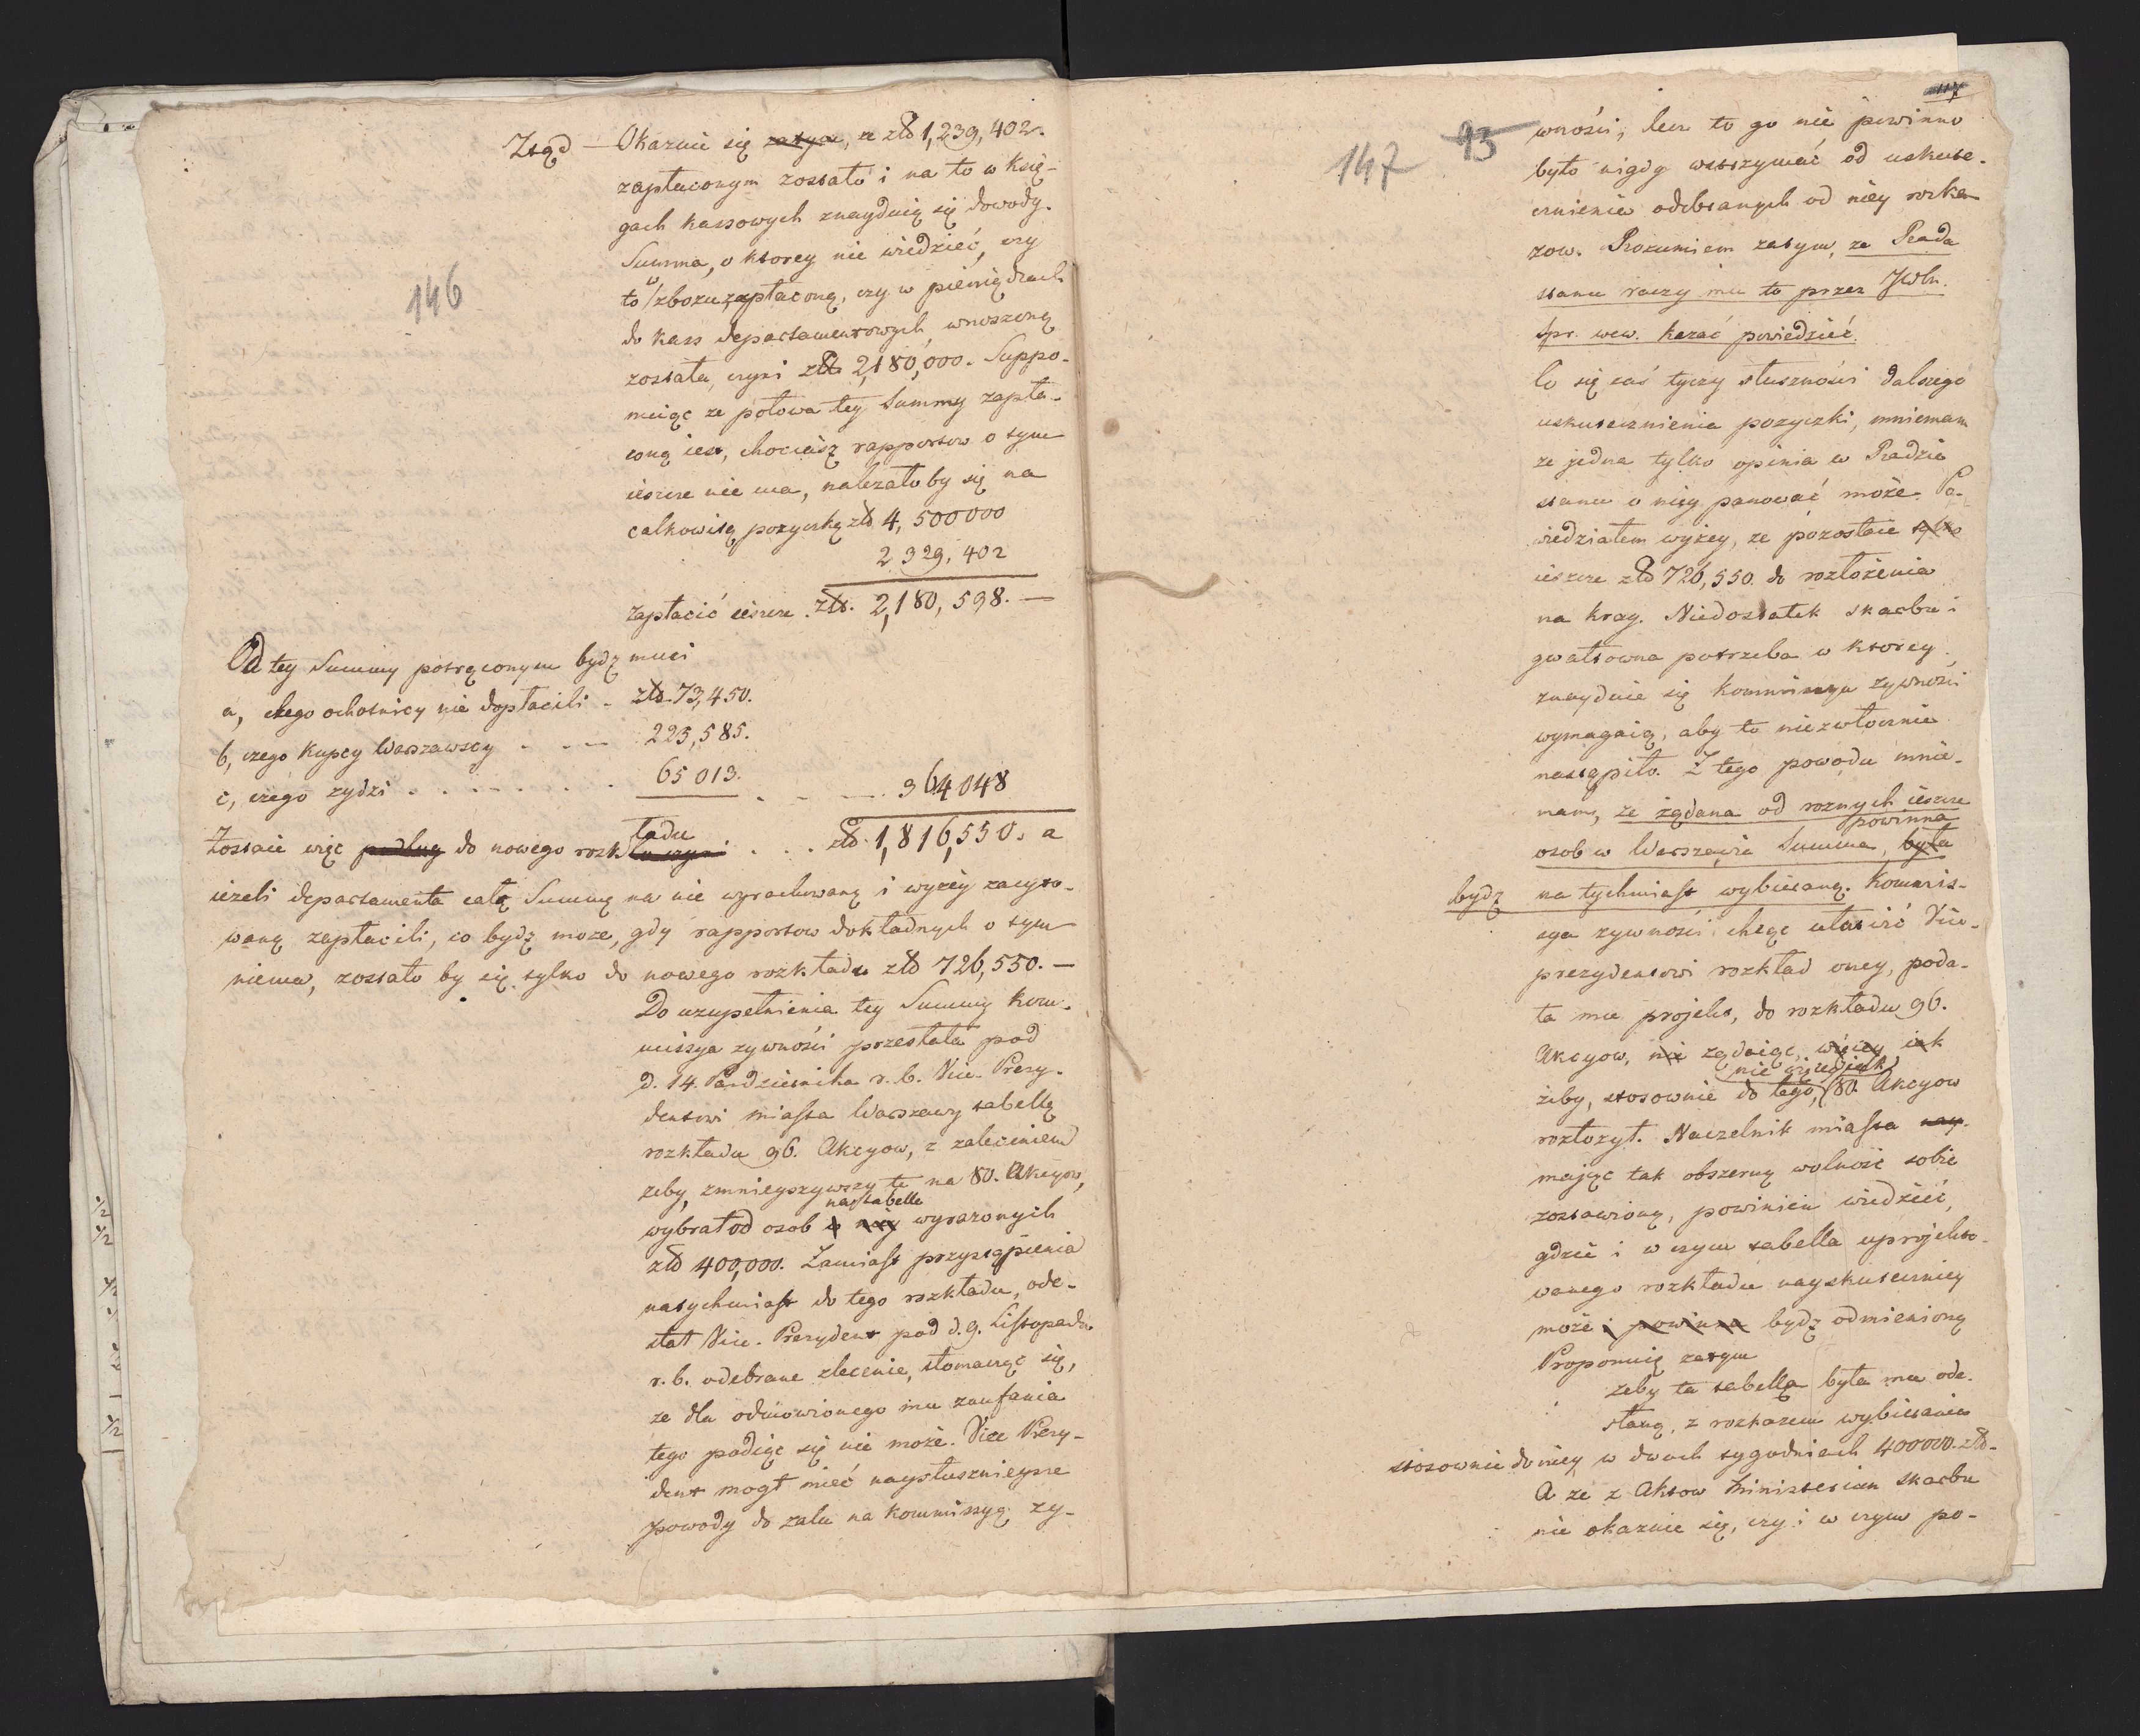 146
Ztąd — Okazuie się zatym, że złł 1,239,402.
zapłaconym zostało i na to w Xię-
gach kassowych znayduią się dowody.
Summa, o ktorey nie wiedzieć, czy
to w zbożu zapłaconą, czy w pieniądzach
do kass departamentowych wnoszoną
została, czyni złł 2,180,000. Suppo-
nuiąc że połowa tey Summy zapła-
coną iest, chociasz rapportow o tym
ieszcze nie ma, należałoby się na
całkowitą pożyczkę złł 4,500000
2 329,402
zapłacić ieszcze . złł. 2,180,598. —
Od tey Summy potrąconym bydź musi
a, czego ochotnicy nie dopłacili - złł. 73,450.
b, czego Kupcy Warszawscy . . . 225,585.
c, czego żydzi . . . . . . 65 013. . - — . 364048
Zostaie więc podług do nowego rozkładu . . . złł. 1,816,550. a
ieżeli departamenta całą Summę na nie wyrachowaną i wyżey zacyto-
waną zapłacili, co bydź może, gdy rapportow dokładnych o tym
niema, zostało by się tylko do nowego rozkładu złł 726,550. —
Do uzupełnienia tey Summy Kom-
missya żywności przesłała pod
d. 14. Pazdziernika r. b. Vice-Prezy-
dentowi miasta Warszawy tabellę
rozkładu 96. Akcyow, z zaleceniem
żeby, zmnieyszywszy te na 80. Akcyow,
na tabelle
wybrał od osob w niey wyrażonych
złł 400,000. Zamiast przystąpienia
natychmiast do tego rozkładu, ode-
słał Vice-Prezydent pod d. 9. Listopada
r. b. odebrane zlecenie, tłomacząc się,
że dla odmowionego mu zaufania
tego podiąć się nie może. Vice Prezy-
dent mogł mieć naysłusznieysze
powody do żalu na Kommissyą ży-
117
147 93
wności, lecz to go nie powinno
było nigdy wstrzymać od uskute-
cznienia odebranych od niey rozka-
zow. Rozumiem zatym, że Rada
stanu raczy mu to przez JWłn.
Spr. wew. kazać powiedzieć.
Co się zaś tyczy słuszności dalszego
uskutecznienia pożyczki, mniemam
że jedna tylko opinia w Radzie
stanu o niey panować może. Po-
wiedziałem wyżey, że pozostaie tylko
ieszcze złł 726,550. do rozłożenia
na kray. Niedostatek skarbu i
gwałtowna potrzeba w ktorey
znayduie się Kommissya żywności
wymagaią, aby to niezwłocznie
nastąpiło. Z tego powodu mnie-
mam, że żądana od roznych ieszcze
powinna
osob w Warszawie Summa, była
bydź na tychmiast wybieraną. Kommis-
sya żywności chcąc ułatwić Vice-
prezydentowi rozkład oney, poda-
ła mu projekt, do rozkładu 96.
Akcyow, nie żądaiąc, więcey iak
nie więcey iak
żeby, stosownie do tego, 80. Akcyow
rozłożył. Naczelnik miasta nay-
mając tak obszerną wolność sobie
zostawioną, powinien wiedzieć,
gdzie i w czym tabella uprojekto-
wanego rozkładu nayskuteczniey
może i powinna bydź odmienioną
Proponuię zatym
żeby ta tabella była mu ode-
słaną, z rozkazem wybierania
stosownie do niey w dwoch tygodniach 400000. złł-
A że z Aktow Ministerium skarbu
nie okazuie się, czy i w czym po-